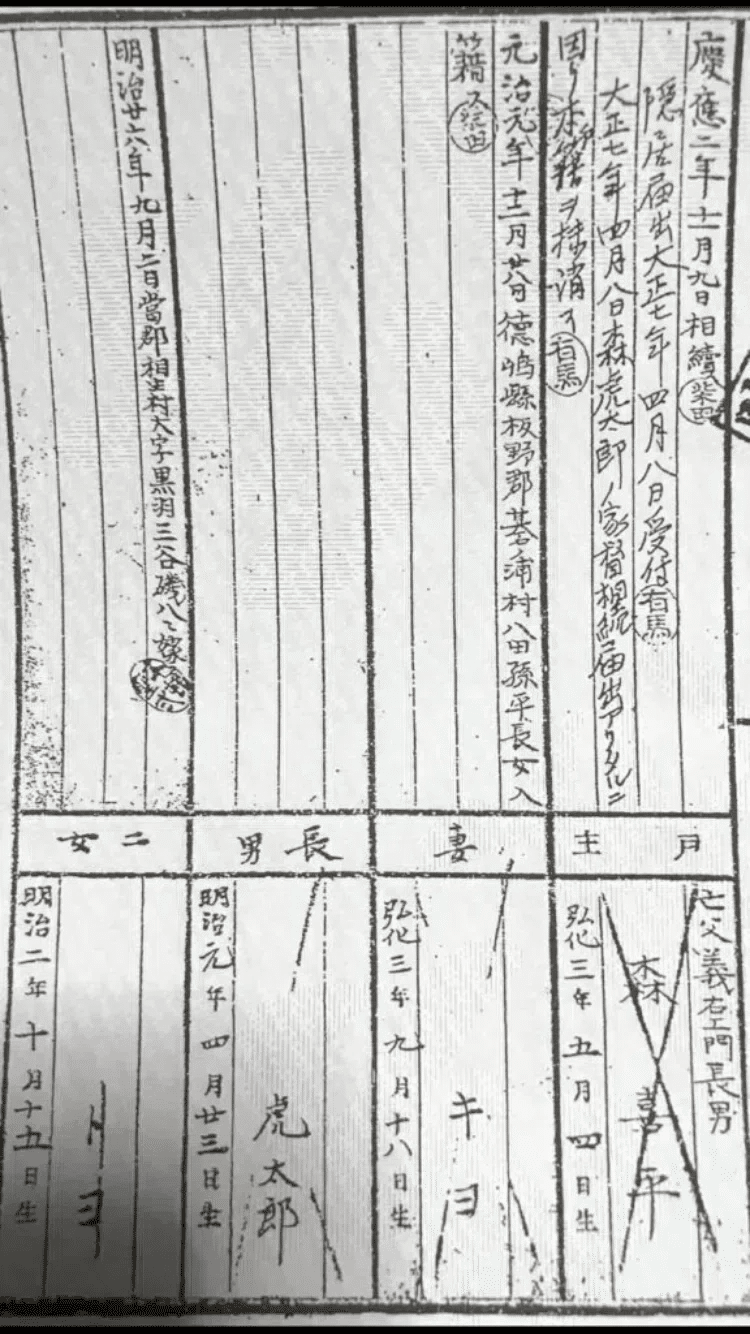 慶應二年十一月九日相續
柴田
隠居届出大正七年四月八日受付
有馬
大正七年四月八日森虎太郎ノ家督相続届出アリタルニ
因リ本戸籍ヲ抹消ス
有馬
戸主
亡父義右エ門長男
森喜平
弘化三年五月四日生
元治元年十二月廿八日徳島縣板野郡碁浦村八田孫平長女入
籍ス
柴田
妻
キヨ
弘化三年九月十八日生
長男
虎太郎
明治元年四月廿三日生
明治廿六年九月二日當郡相生村大字黒羽三谷磯八ニ嫁
二女
トヨ
明治二年十月十五日生